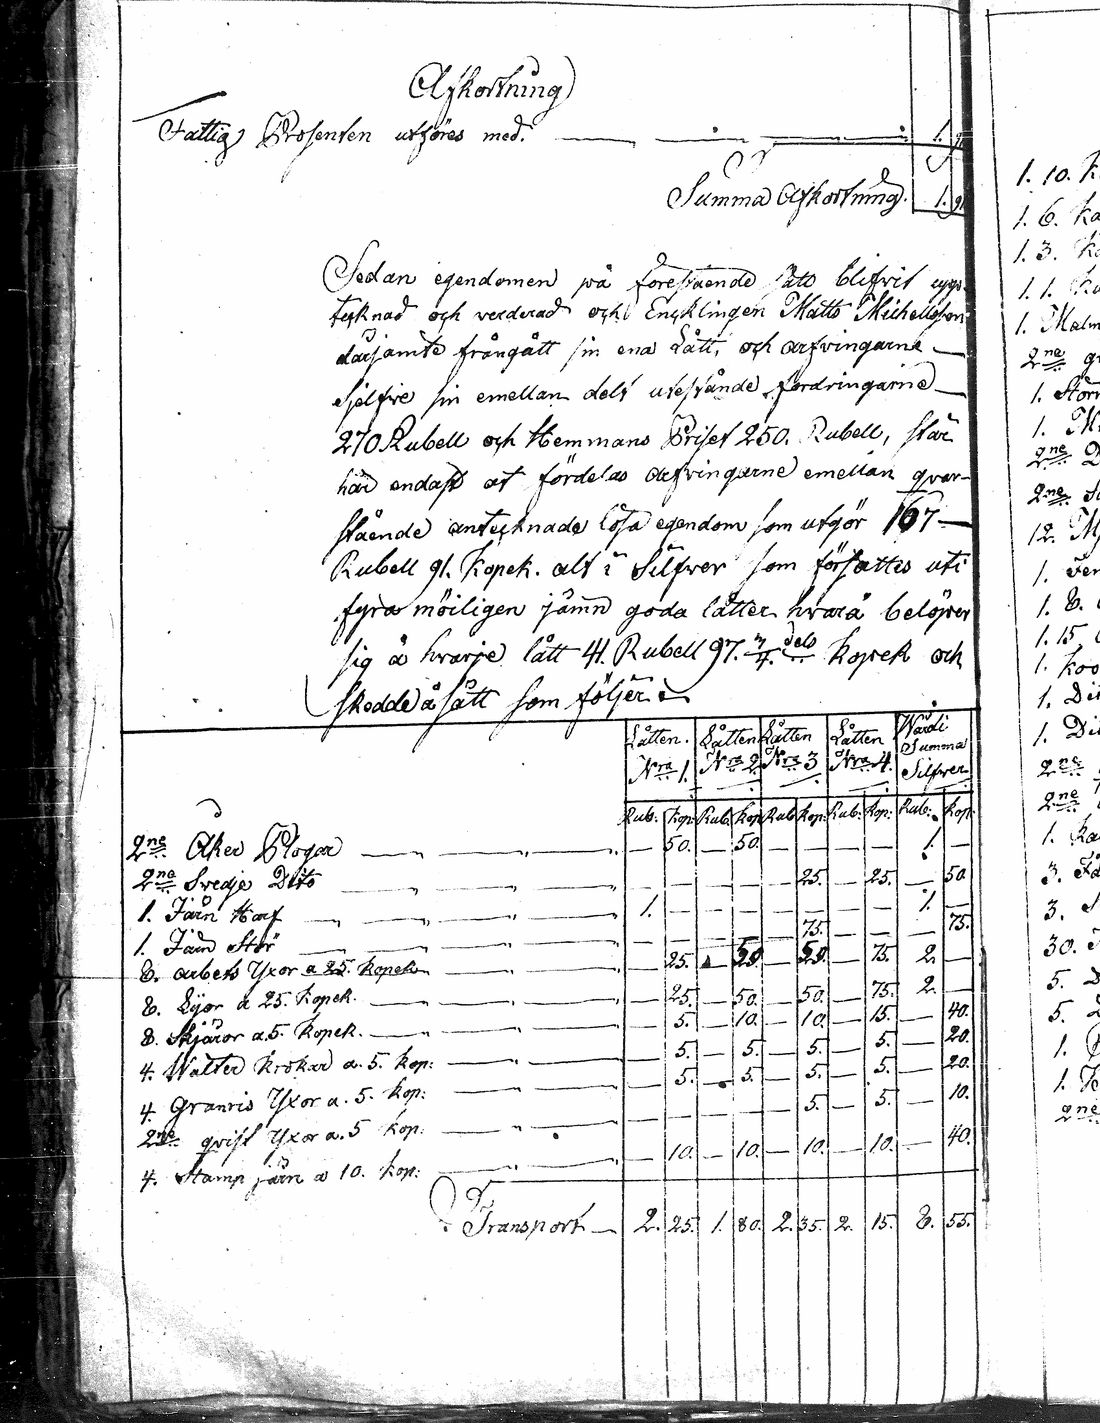 Afkortning
Fattig Prosenten utföres med. 1. 91
Summa Afkortning. 1. 91
Sedan egendomen på förestående sätt blifvit upp-
teknad och verderad och Encklingen Matts Michelsson
därjämte frångått sin ena Lått, och arfvingarne
sjelfve sin emellan delt utestånde fordringarne
270 Rubell och Hemmans Priset 250. Rubell, står
här endast at fördelas arfvingarne emellan qvar-
stående antecknade lösa egendom som utgör 167
Rubell 91. Kopek. alt i Silfwer som författes uti
fyra möiligen jämn goda låtter hvarå belöper
sig å hvarje lått 41. Rubell 97. 3/4 dels Kopek och
skedde å sätt som följer
Låtten. Låtten Låtten Låtten Värdi
Nra 1. Nra 2 Nra 3 Nra 4. Summa
Silfver
Rub: kop: Rub. kop Rub kop: Rub: kop: Rub: kop:
2ne Åker Plogar — 50. — 50. 1. —
2ne Svedje Dito — — — — — 25. — 25. — 50
1. Järn Harf 1. — — — — — — — 1. —
1. Järn Stör — — — — — 75. — — — 75.
8. arbets Yxor a 25. kopek — 25. — 50 — 50. — 75. 2. —
8. Lijor a 25. kopek. — 25. — 50. — 50. — 75. 2. —
8. Skjäror a. 5. kopek. — 5. — 10. — 10. — 15. — 40.
4. Walter krokar a. 5. kop: — 5. — 5. — 5. — 5. — 20.
4. Granris Yxor a. 5. kop: — 5. — 5. — 5. — 5. — 20.
2ne qvist Yxor a. 5 kop: — — — — — 5. — 5. — 10.
4. Stamp järn a 10. kop: — 10. — 10. — 10. — 10. — 40.
Transport 2. 25. 1. 80. 2. 35. 2. 15. 8. 55.
1. 10.
1. 6. Ka
1. 3.
1. 1.
1. Malm
2ne
1. Störr
1.
2ne
2ne
12.
1.
1. 8.
1. 15.
1.
1.
1.
2ne
2ne
1. Ka
3.
3.
30.
5.
5.
1.
1.
2ne